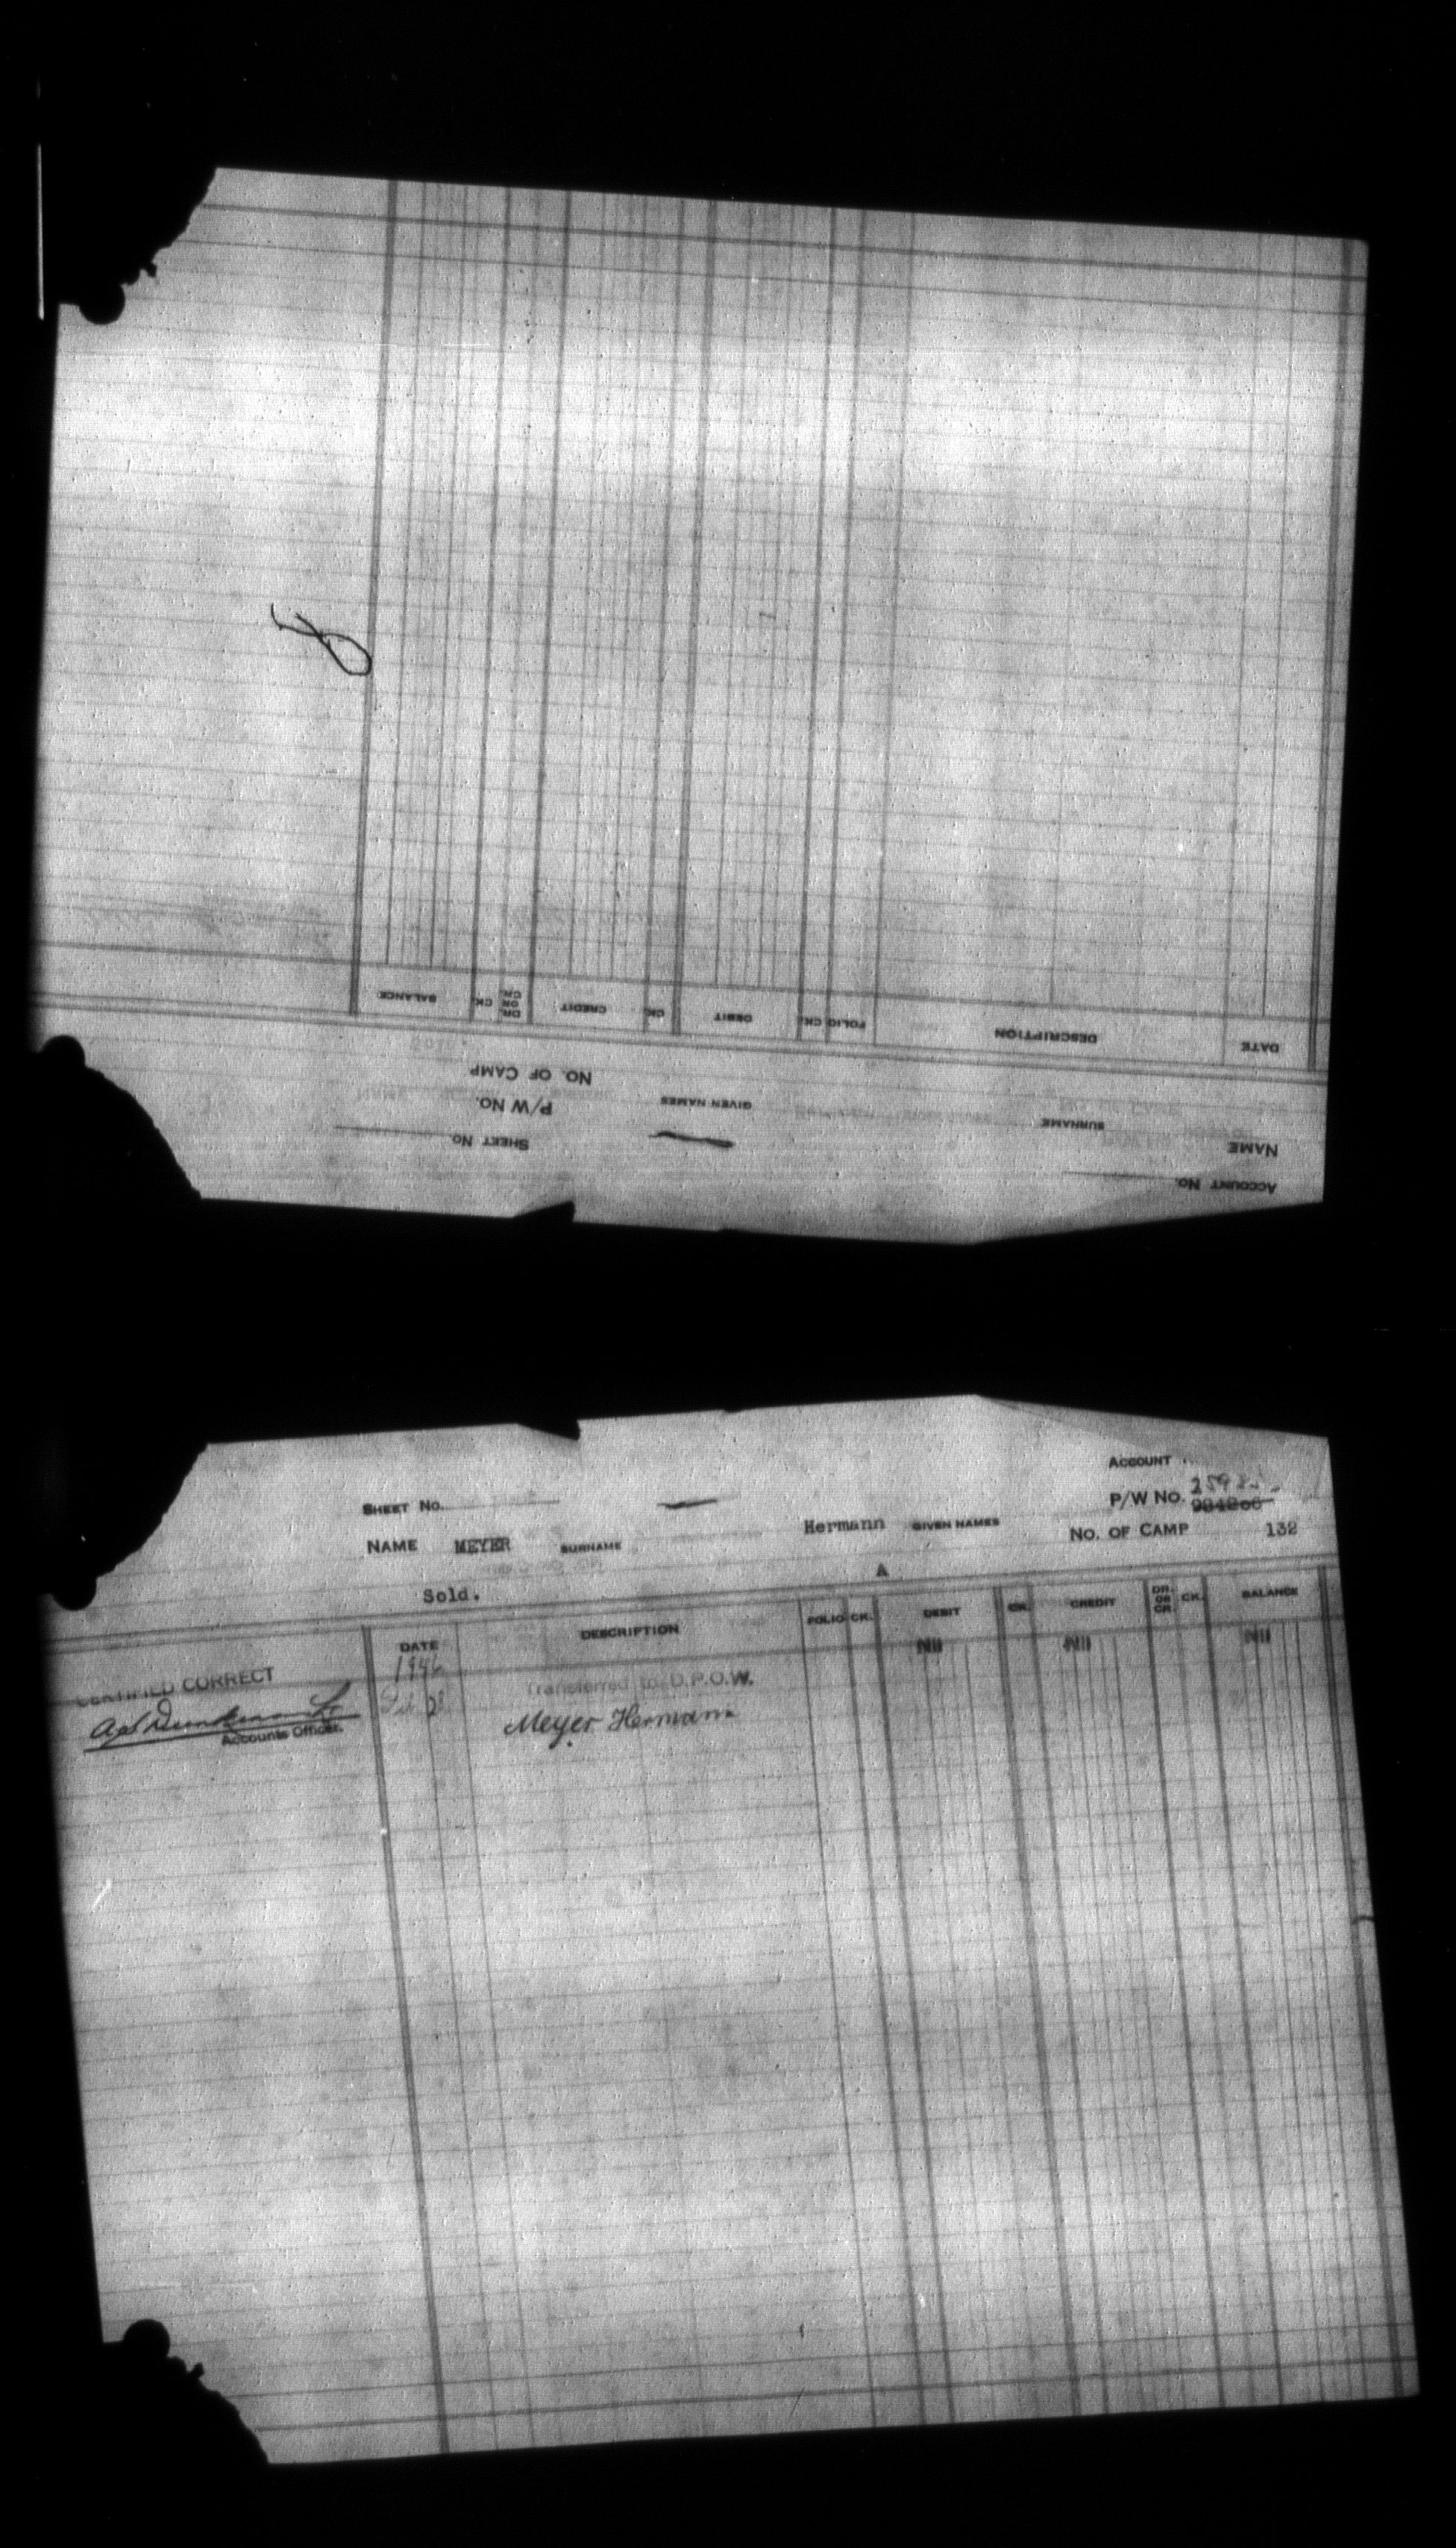 ACCOUNT No.
NAME SURNAME GIVEN NAMES
SHEET No.
P/W No.
NO. OF CAMP
DATE DESCRIPTION FOLIO CK. DEBIT CK. CREDIT DR. OR CR. CK. BALANCE
ACCOUNT
SHEET No. P/W No.
NAME MEYER SURNAME Hermann GIVEN NAMES NO. OF CAMP 132
A
Sold.
DATE DESCRIPTION FOLIO CK. DEBIT CK. CREDIT DR. OR CR. CK. BALANCE
1946 Nil Nil Nil
CERTIFIED CORRECT Transferred to D.P.O.W.
Meyer Hermann
Accounts Officer.